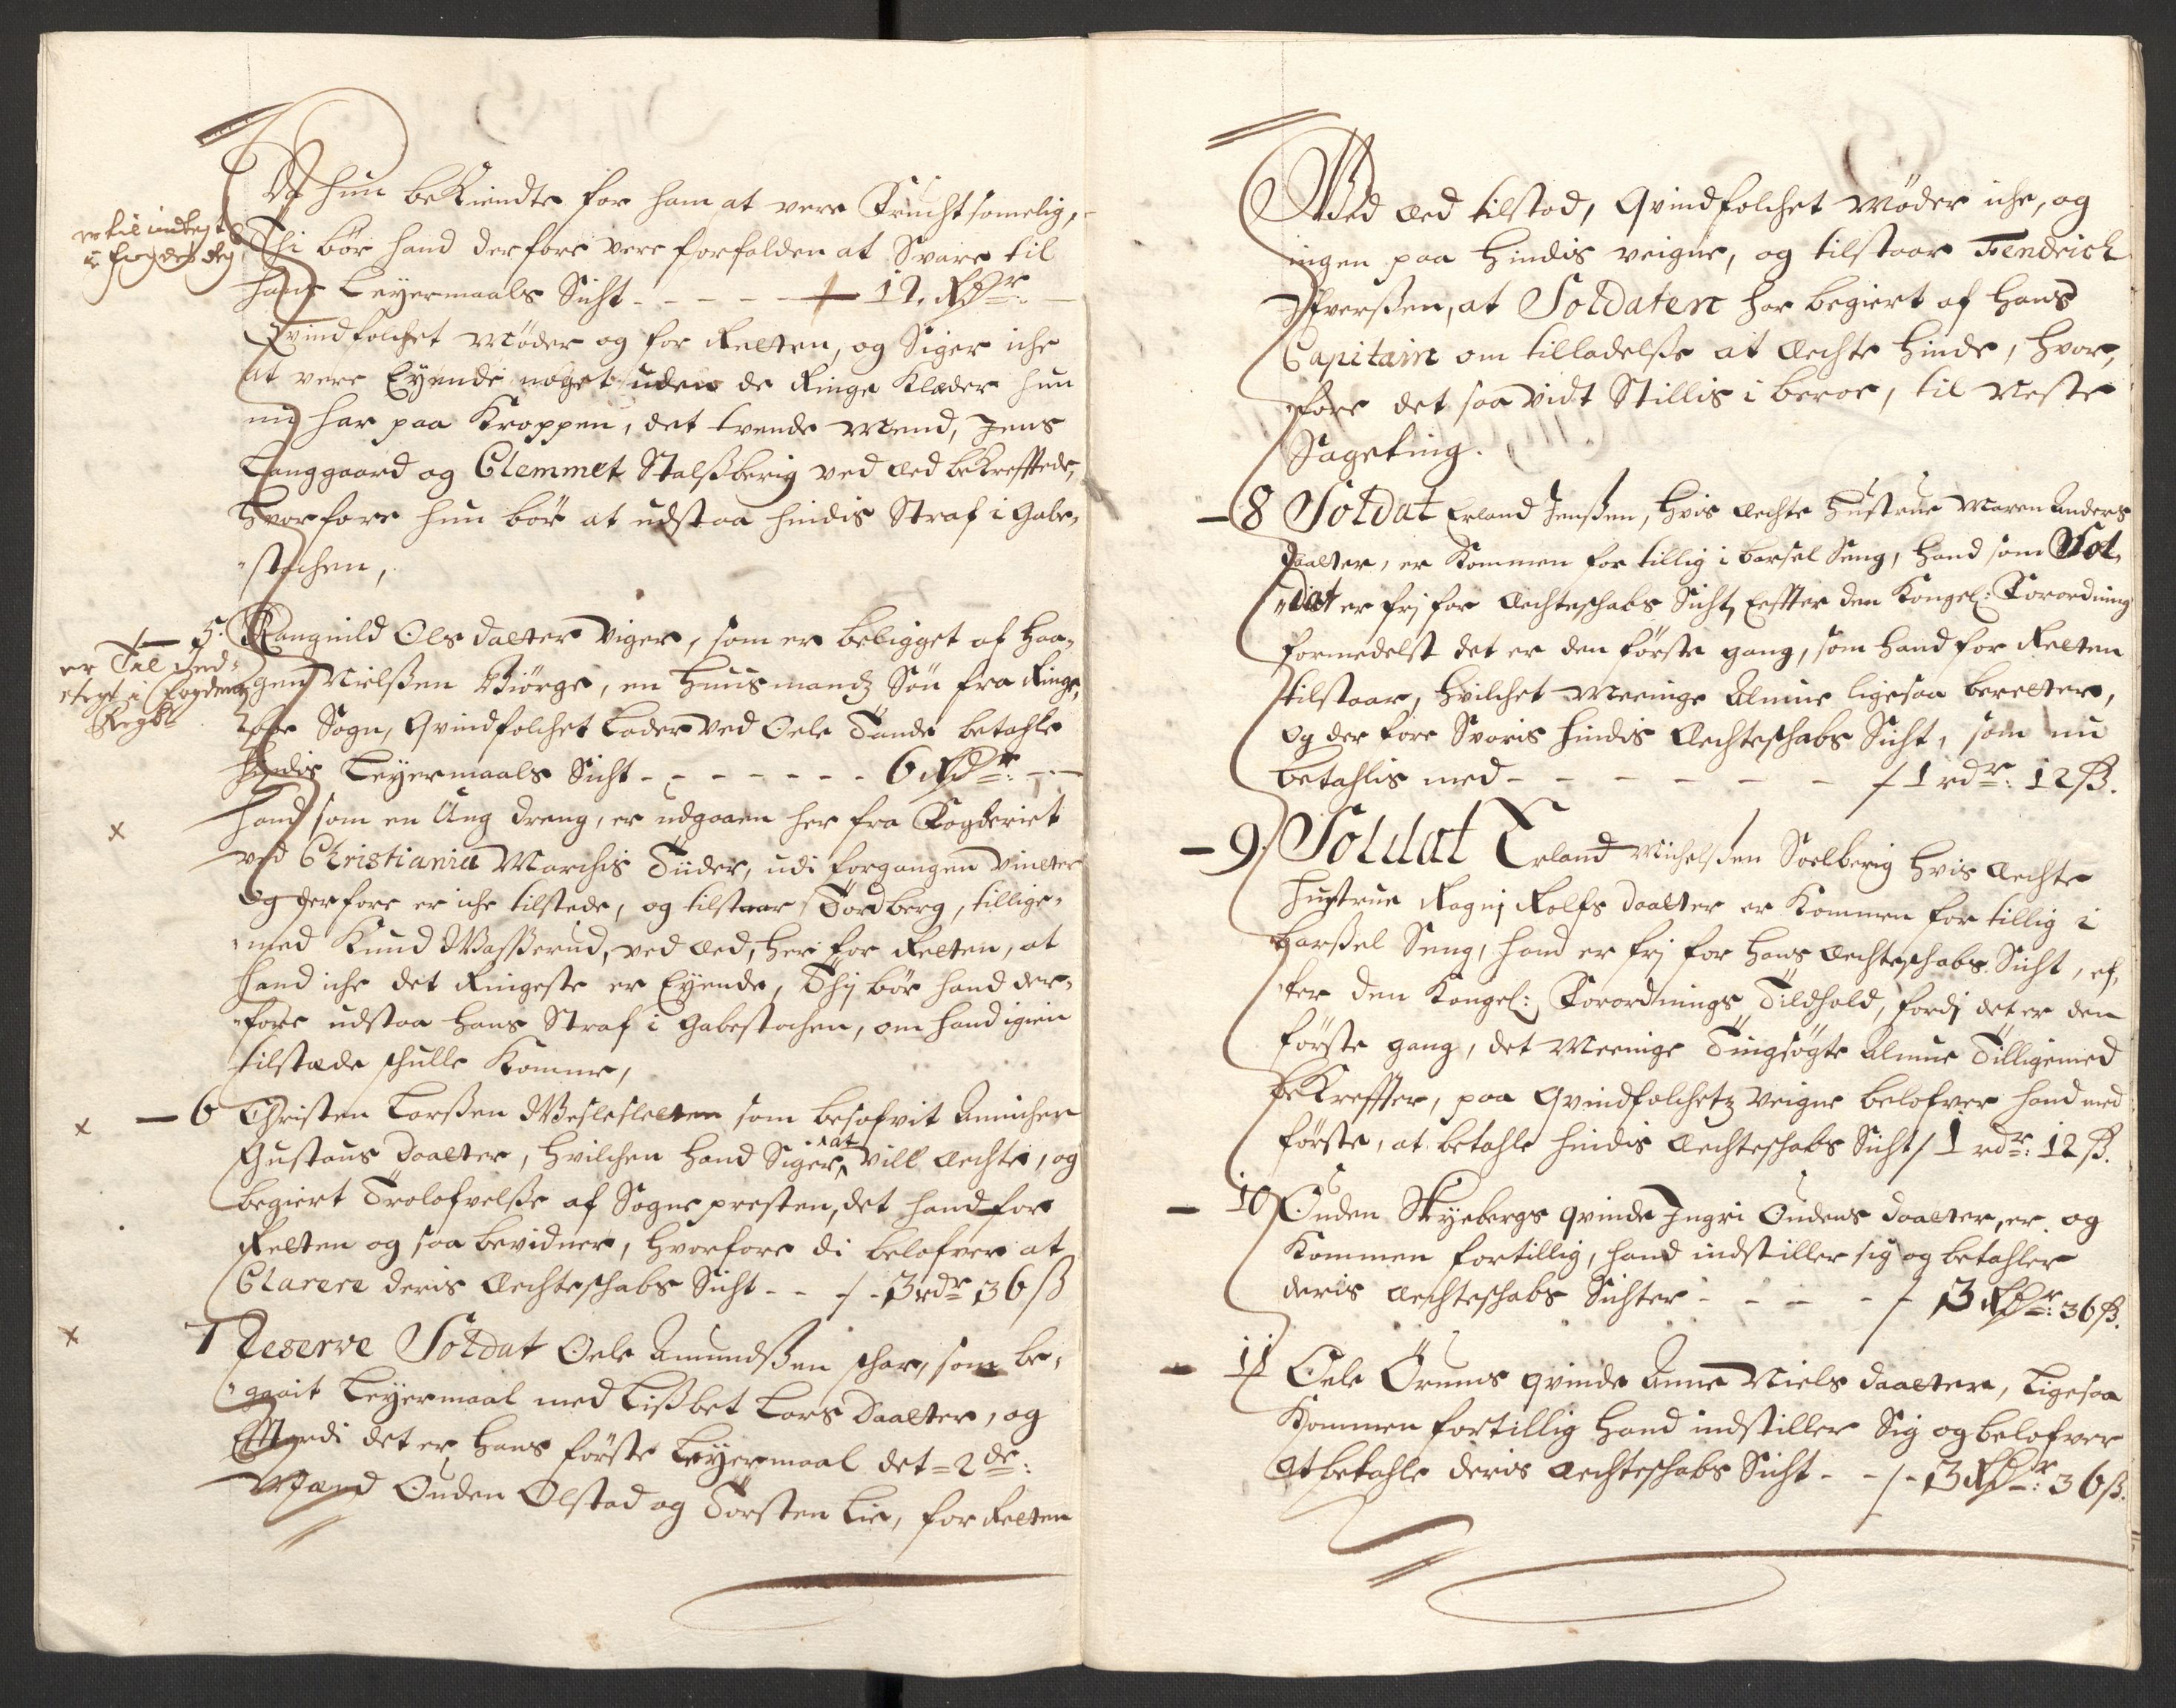 Da hun bekiendte for ham at vere Fruchtsomelig,
Thi bör hand derfore vere forfalden at Svare til
er til indtegt
i fogdens Reg
hans Leyermaals Sicht - - - - - 12. Rdr:
Qvindfolchet Möder og for Retten, og Siger iche
at vere Eyende noget uden de Ringe Klæder hun
nu har paa Kroppen, det tvende Mend, Jens
Langgaard og Clemmet Stalßberig ved Æd bekrefftede,
Hvorfore hun bör at udstaa hindis Straf i Gabe-
stochen,
5. Rangnild Ols daatter Viger, som er beligget af Haa-
er Til Ind-
tegt i Fogdens
Regsk
gen Nielßen Biörge, en Huusmandz Sön fra Ringe-
Sogn, Qvindfolchet Lader ved Oele Tande betahle
hindis Leyermaals Sicht - - - - - - - 6 Rdr:
x
hand som en Ung dreng, er udgaaen her fra Fogderiet
ved Christiania Marchis Tiider, udi forgangen Vintter
og derfore er iche tilstede, og tilstaar Tordberg, tillige-
med Knud Waßerud, ved Æd, her for Retten, at
hand iche det Ringeste er Eyende, Thj bör hand der-
fore udstaa hans Straf i Gabestochen, om hand igien
tilstæde schulle Komme,
x
6 Christen Larßen Wesleslette som besofvit Annichen
Gustaus daatter, hvilchen hand Siger at vill Æchte, og
begiert Trolofvelße af Sogne presten, det hand for
Retten og saa bevidner, Hvorfore di belofver at
Clarere deris Æchteschabs Sicht - - - 3 rdr 36 ß
x
7 Reserve Soldat Oele Amundßen schar, som be-
gaait Leyermaal med Lißbet Lars daatter, og
Efftterdi det er hans förste Leyermaal det 2de:
Mænd Ouden Olstad og Torsten Lie, for Retten
Wed Æd tilstod, Qvindfolchet Möder iche, og
ingen paa Hindis veigne, og tilstaar Fendrich
Ifverßen, at Soldaten har begiert af Hans
Capitain om tilladelße at Æchte Hinde, Hvor-
fore det saa vidt Stillis i beroe, til Neste
Sageting.
8 Soldat Erland Jenßen, hvis Æchte Hustrue Maren Anders
daatter, er Kommen for tillig i barsel Seng, hand som Sol-
dat er frj for Æchteschabs Sicht, Effter den Kongel: Forordning
formedelst det er den förste gang, som hand for Retten
tilstaar, hvilchet Meenige Almue ligesaa beretter,
Og der fore Svaris hindis Æchteschabs Sicht, som nu
betahlis med - - - - - - 1 rdr: 12 ß.
9. Soldat Erland Michelßen Soelberig hvis Æchte
Hustrue Ragnj Rolfs daatter er Kommen for tillig i
Barßel Seng, hand er frj for hans Æchteschabs Sicht, ef-
ter den Kongel: Forordnings Tildhold, fordj det er den
förste gang, det Meenige Tingsögte Almue Tilligemed
bekreffter, paa Qvindfolchetz Veigne belofver hand med
förste, at betahle hindis Æchteschabs Sicht 1 rdr: 12 ß.
10 Ouden Skyebergs qvinde Ingri Oudens daatter, er og
Kommen fortillig, hand indstiller sig og betahler
deris Æchteschabs Sichter - - - - 3 Rdr: 36 ß.
11 Oele Örums qvinde Anne Niels daatter, Ligesaa
Kommen fortillig hand indstiller Sig og belofver
At betahle deris Æchteschabs Sicht - - 3 Rdr: 36 ß.